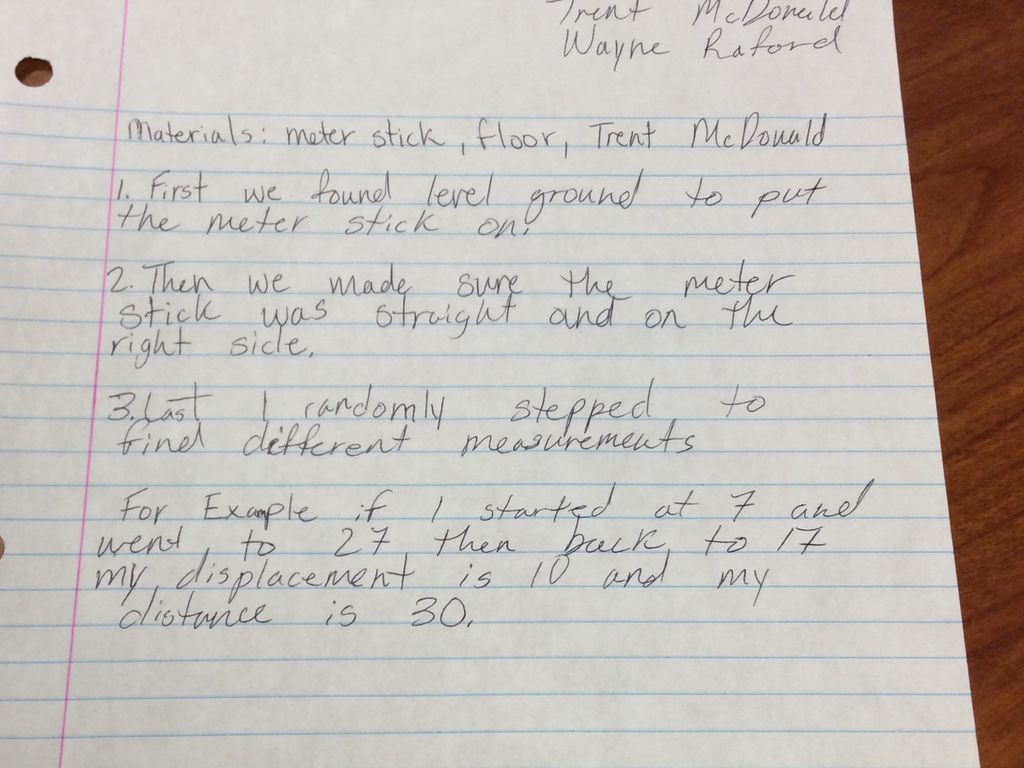 Trent McDonald
Wayne Raford
Materials: meter stick, floor, Trent McDonald
1. First we found level ground to put
the meter stick on.
2. Then we made sure the meter
stick was straight and on the
right side.
3. Last I randomly stepped to
find different measurements
For Example if I started at 7 and
went to 27, then back to 17
my displacement is 10 and my
distance is 30.